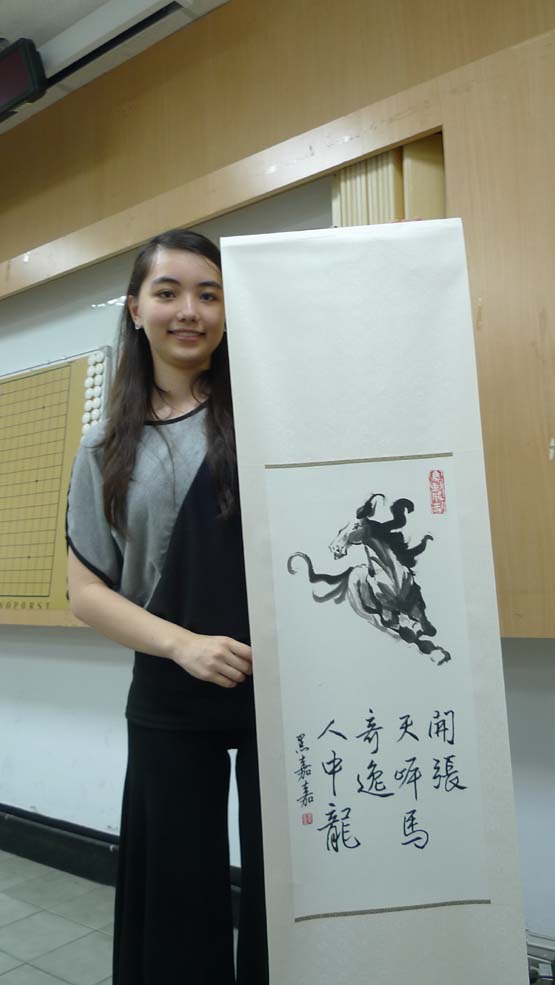 開張
天岸馬
奇逸
人中龍
黑嘉嘉
OPQRST